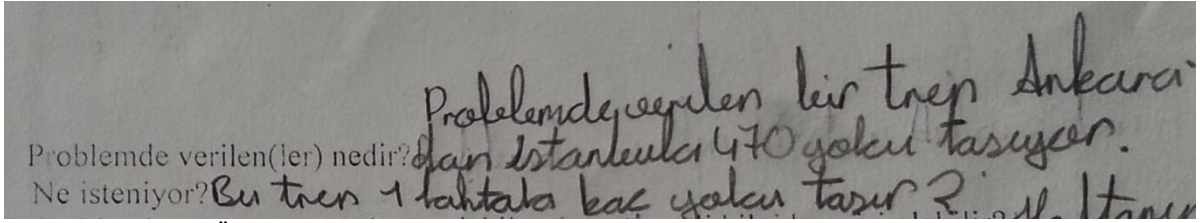 Problemde verilen bir tren Ankara
Problemde verilen(ler) nedir? dan istanbula 470 yolcu tasıyor.
Ne isteniyor? Bu tren 1 haftada kac yolcu tasır?